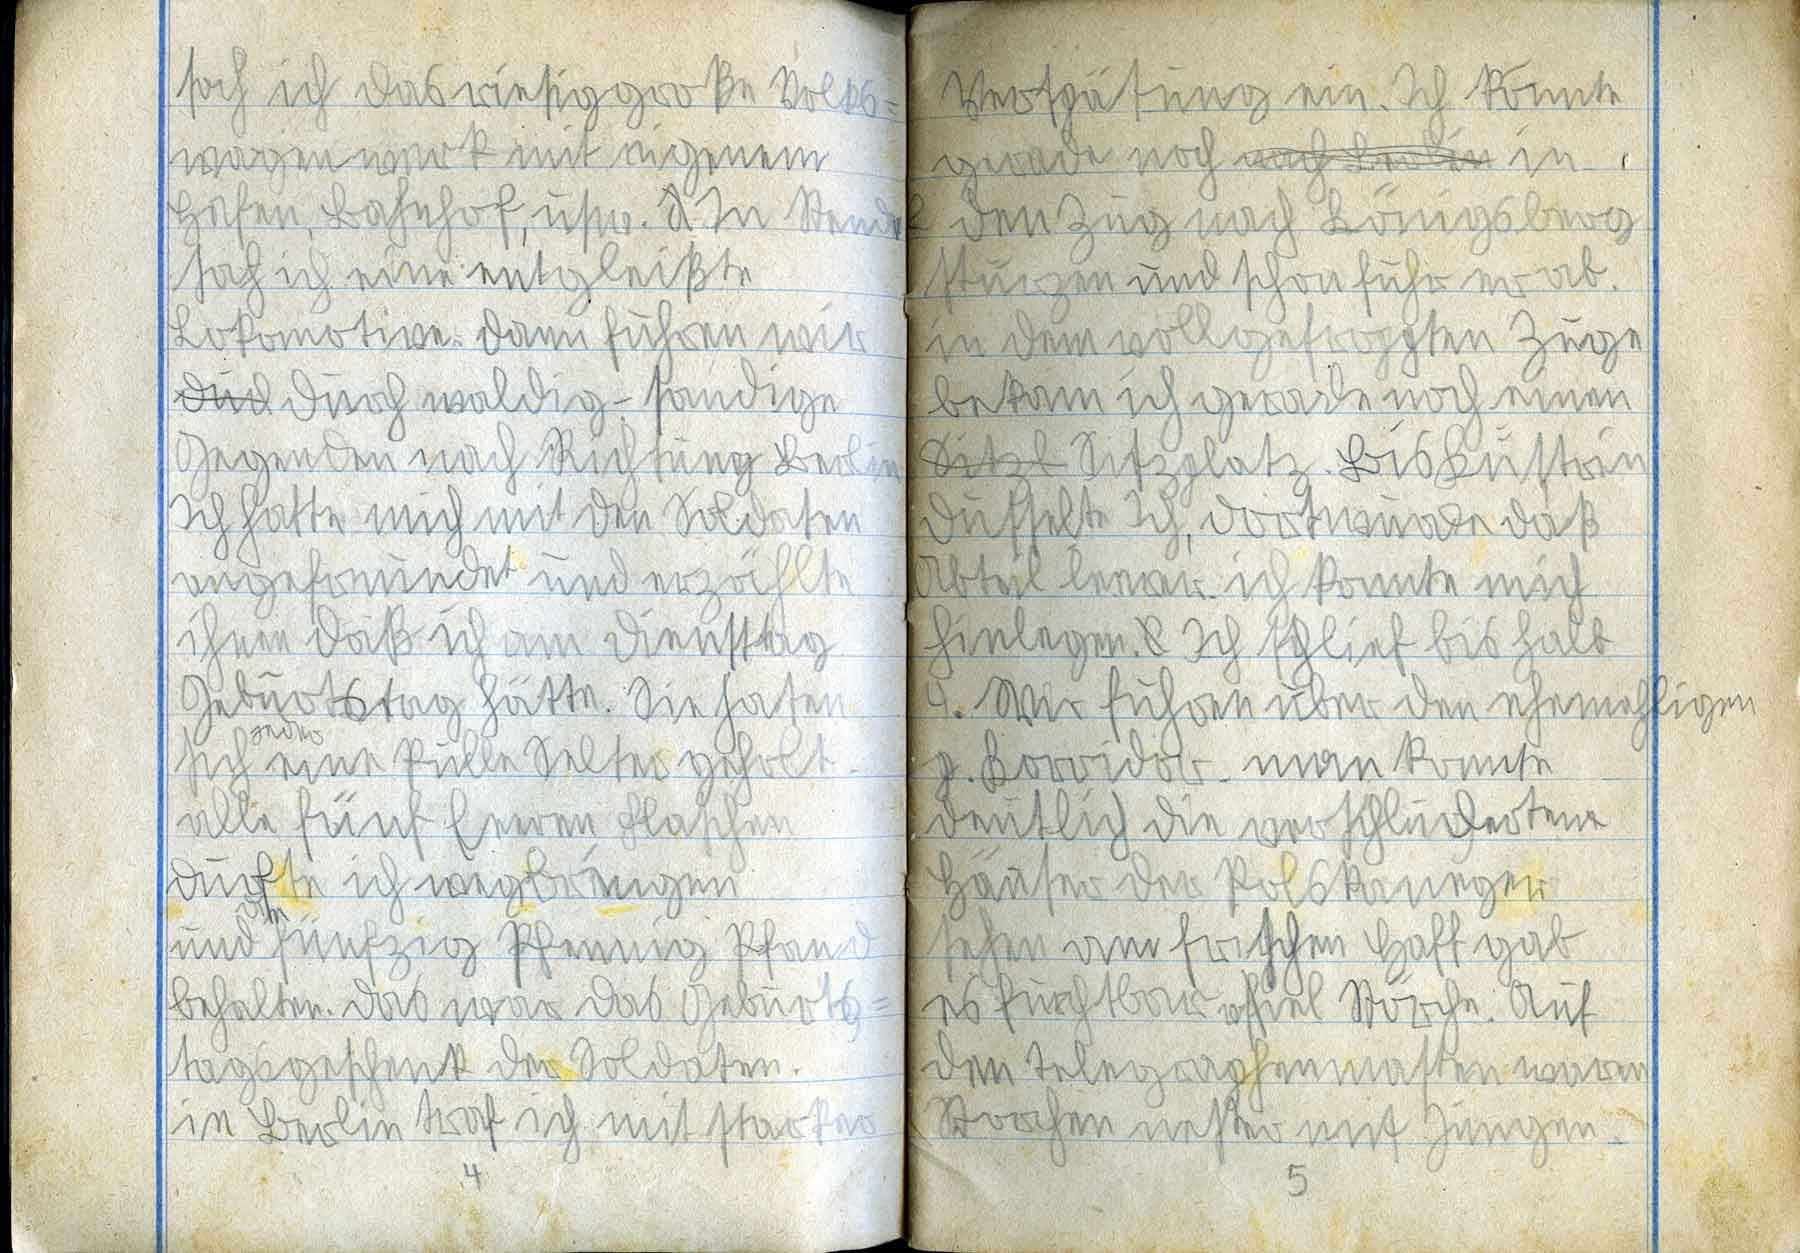 sah ich das riesiggroße Volks=
wagenwerk mit eigenem
Hafen, Bahnhof, usw. In Stendal
sah ich eine entgleißte
Lokomotive. Dann fuhren wir
dud durch waldig-, sandige
Gegenden nach Richtung Berlin
Ich hatte mich mit den Soldaten
angefreundet und erzählte
ihnen daß ich am Dienstag
Geburtstag hätte. Sie haten
sich jeder eine Pulle Selter geholt.
alle fünf leeren Flaschen
durfte ich wegbrengen
und die fünfzig Pfennig Pfand
behalten. Das war das Geburts=
tagsgeschenk der Soldaten.
in Berlin traf ich mit starker
4
Verspätung ein. Ich konnte
gerade noch nach Berlin in
den Zug nach Königsberg
stürzen und schon fuhr er ab.
in dem vollgefroppten Zuge
bekam ich gerade noch einen
Sitzl Sitzplatz. Bis Küstrin
dusselte Ich, dort wurde daß
Abteil leerer. ich konnte mich
hinlegen. Ich schlief bis halb
4. Wir fuhren über den ehemehligen
p. Korridor. man konnte
deutlich die verschludertene
Häuser der Polskaneger
sehen am frischen Haff gab
es furchtbar viel Störche. Auf
den Telegraphenmasten waren
Storchennester mit Jungen.
5